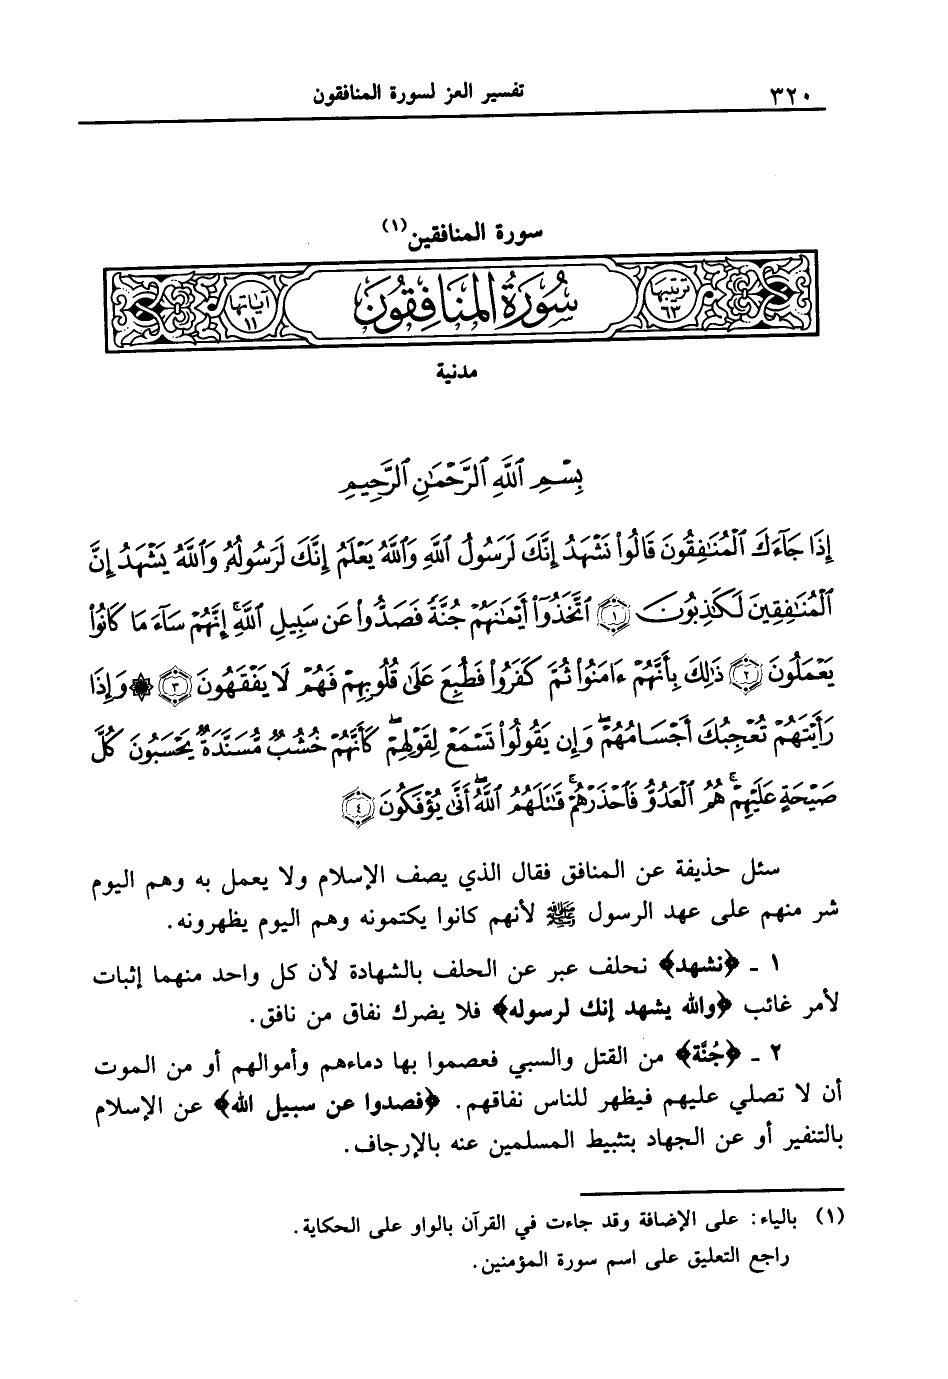 ٣٢٠
تفسير العز لسورة المنافقون
سورة المنافقين (١)
ترتيبها ٦٣
سُورَةُ المنَافِقُونَ
آياتها ١١
مدنية
بِسْمِ ٱللَّهِ ٱلرَّحْمَٰنِ ٱلرَّحِيمِ
إِذَا جَآءَكَ ٱلْمُنَٰفِقُونَ قَالُوا۟ نَشْهَدُ إِنَّكَ لَرَسُولُ ٱللَّهِ وَٱللَّهُ يَعْلَمُ إِنَّكَ لَرَسُولُهُۥ وَٱللَّهُ يَشْهَدُ إِنَّ
ٱلْمُنَٰفِقِينَ لَكَٰذِبُونَ ١ ٱتَّخَذُوٓا۟ أَيْمَٰنَهُمْ جُنَّةً فَصَدُّوا۟ عَن سَبِيلِ ٱللَّهِ ۚ إِنَّهُمْ سَآءَ مَا كَانُوا۟
يَعْمَلُونَ ٢ ذَٰلِكَ بِأَنَّهُمْ ءَامَنُوا۟ ثُمَّ كَفَرُوا۟ فَطُبِعَ عَلَىٰ قُلُوبِهِمْ فَهُمْ لَا يَفْقَهُونَ ٣ ۞ وَإِذَا
رَأَيْتَهُمْ تُعْجِبُكَ أَجْسَامُهُمْ ۖ وَإِن يَقُولُوا۟ تَسْمَعْ لِقَوْلِهِمْ ۖ كَأَنَّهُمْ خُشُبٌ مُّسَنَّدَةٌ ۖ يَحْسَبُونَ كُلَّ
صَيْحَةٍ عَلَيْهِمْ ۚ هُمُ ٱلْعَدُوُّ فَٱحْذَرْهُمْ ۚ قَٰتَلَهُمُ ٱللَّهُ ۖ أَنَّىٰ يُؤْفَكُونَ ٤
سئل حذيفة عن المنافق فقال الذي يصف الإسلام ولا يعمل به وهم اليوم
شر منهم على عهد الرسول ﷺ لأنهم كانوا يكتمونه وهم اليوم يظهرونه.
١ ـ ﴿نشهد﴾ نحلف عبر عن الحلف بالشهادة لأن كل واحد منهما إثبات
لأمر غائب ﴿والله يشهد إنك لرسوله﴾ فلا يضرك نفاق من نافق.
٢ ـ ﴿جُنَّة﴾ من القتل والسبي فعصموا بها دماءهم وأموالهم أو من الموت
أن لا تصلي عليهم فيظهر للناس نفاقهم. ﴿فصدوا عن سبيل الله﴾ عن الإسلام
بالتنفير أو عن الجهاد بتثبيط المسلمين عنه بالإرجاف.
(١) بالياء: على الإضافة وقد جاءت في القرآن بالواو على الحكاية.
راجع التعليق على اسم سورة المؤمنين.